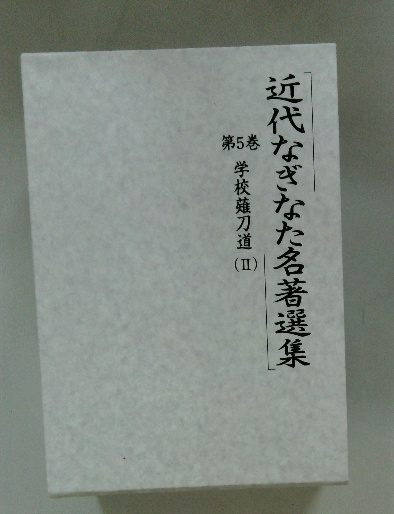 近代なぎなた名著選集
第5巻 学校薙刀道(Ⅱ)